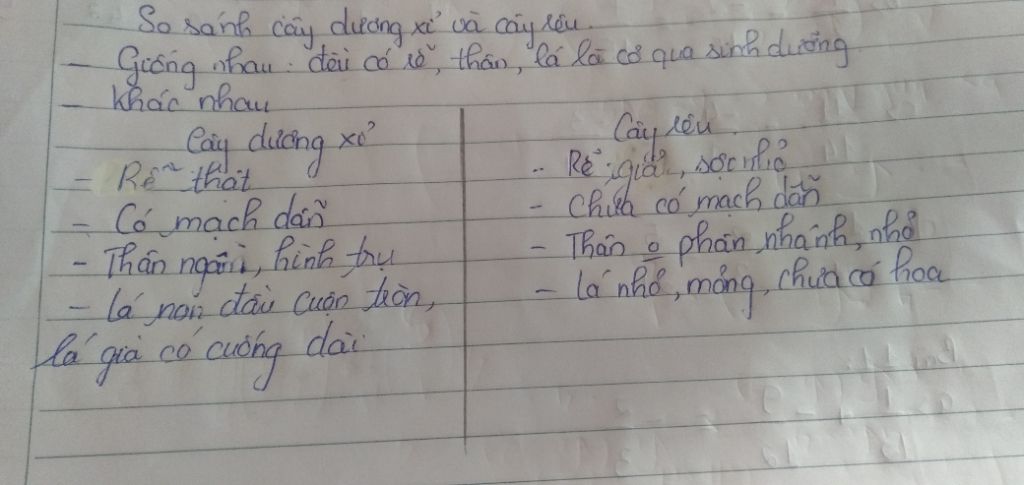 So sánh cây dương xỉ và cây rêu.
- Giống nhau: đều có rễ, thân, lá là cơ qua sinh dưỡng
- Khác nhau
Cây dương xỉ
- Rễ thật
- Có mạch dẫn
- Thân ngầm, hình trụ
- lá non đầu cuộn tròn,
lá già có cuống dài
Cây rêu
- Rễ giả, nhỏ
- Chưa có mạch dẫn
- Thân o phân nhánh, nhỏ
- lá nhỏ, mỏng, chưa có hoa